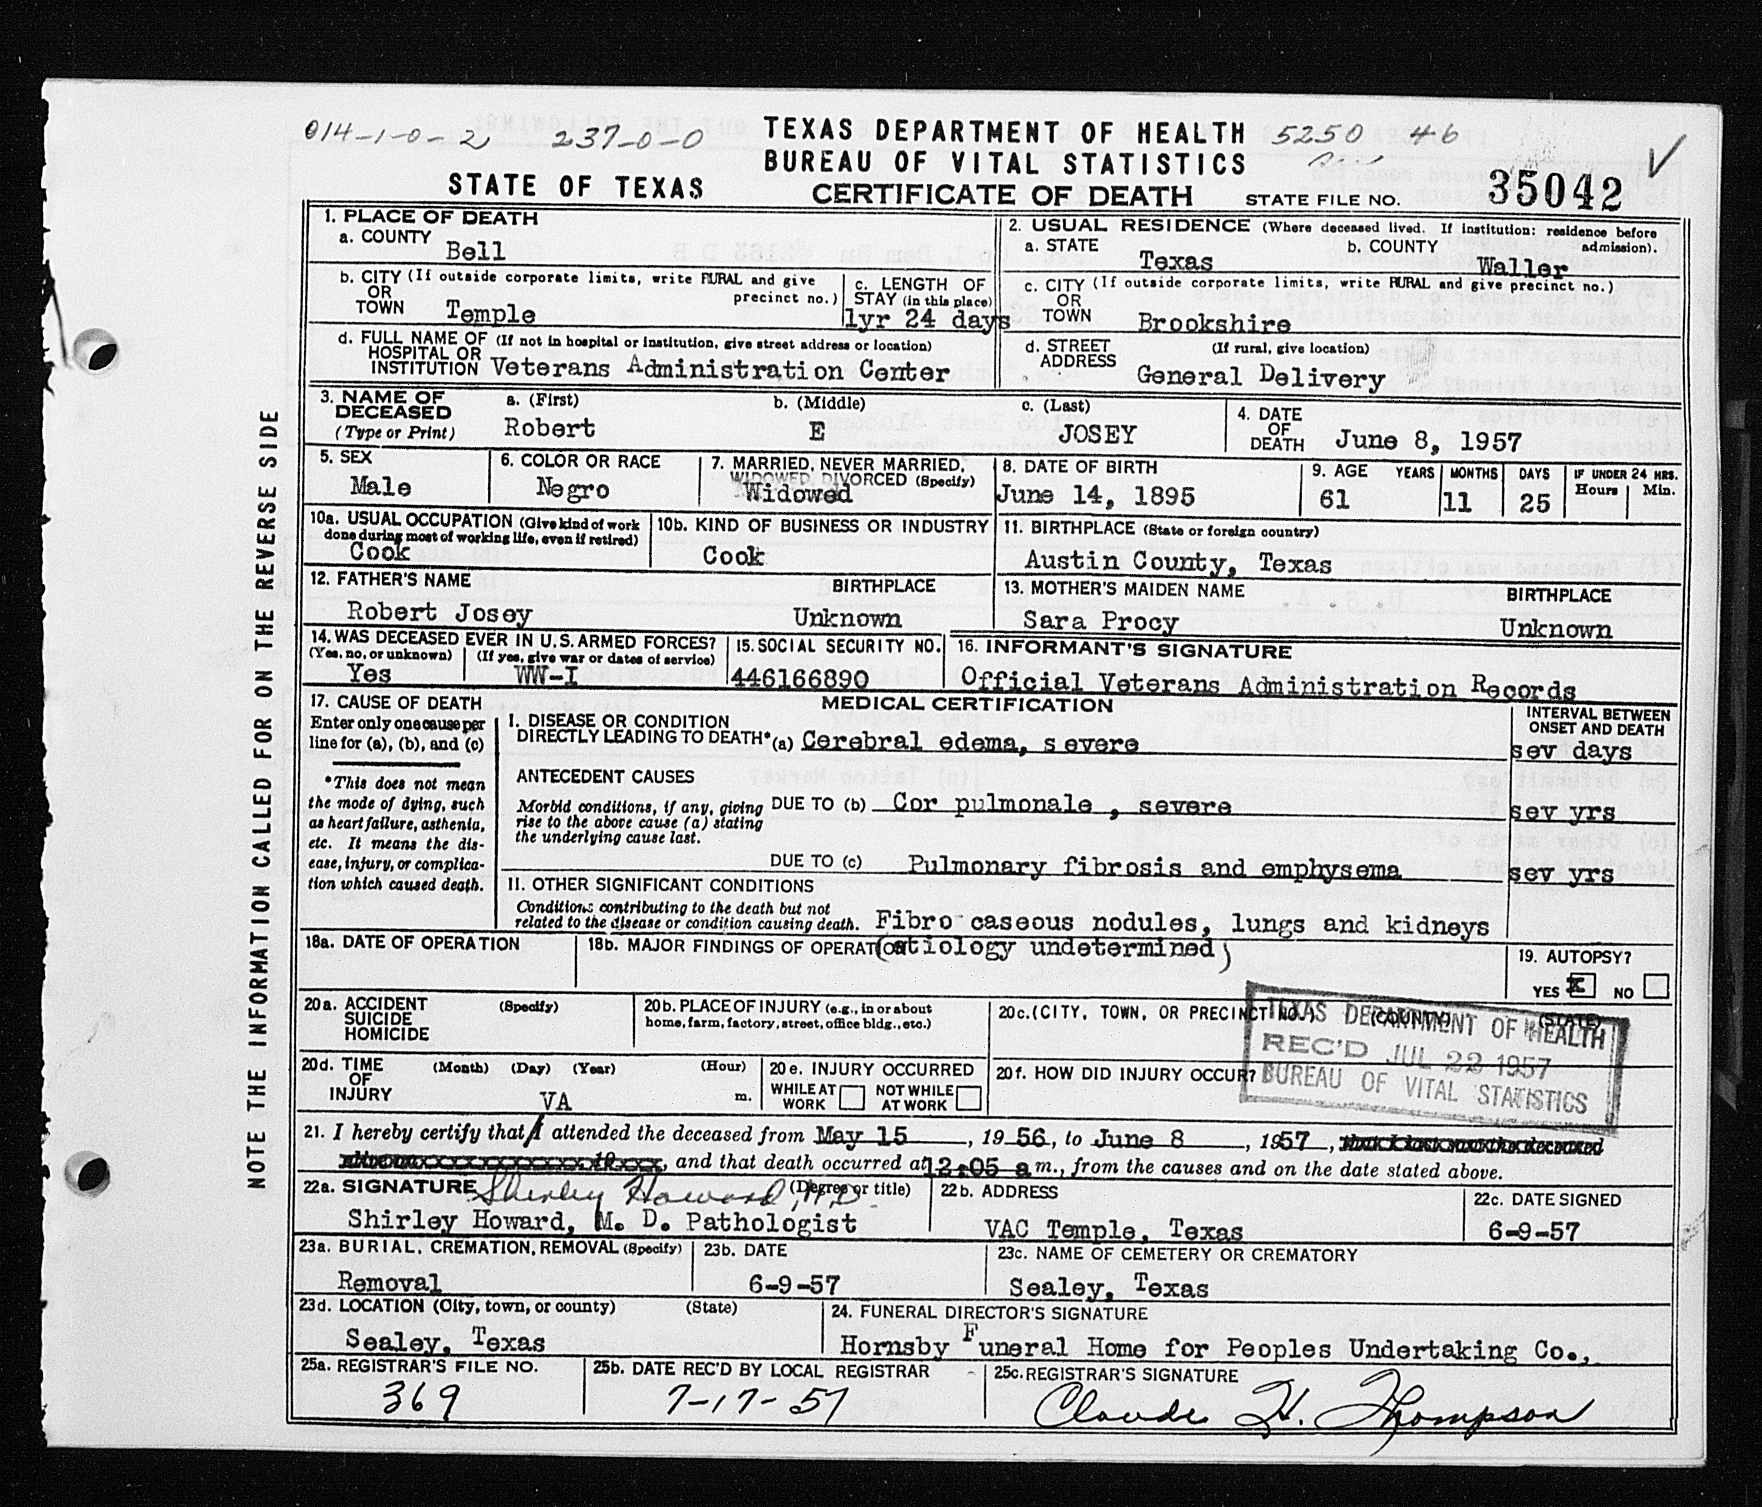 014-1-0-2 237-0-0 TEXAS DEPARTMENT OF HEALTH 5250 46
BUREAU OF VITAL STATISTICS
STATE OF TEXAS CERTIFICATE OF DEATH STATE FILE NO. 35042
NOTE THE INFORMATION CALLED FOR ON THE REVERSE SIDE
1. PLACE OF DEATH
a. COUNTY
Bell
2. USUAL RESIDENCE (Where deceased lived. If institution: residence before admission).
a. STATE b. COUNTY
Texas Waller
b. CITY (If outside corporate limits, write RURAL and give precinct no.)
OR
TOWN Temple
c. LENGTH OF
STAY (in this place)
1yr 24 days
c. CITY (If outside corporate limits, write RURAL and give precinct no.)
OR
TOWN Brookshire
d. FULL NAME OF (If not in hospital or institution, give street address or location)
HOSPITAL OR
INSTITUTION Veterans Administration Center
d. STREET (If rural, give location)
ADDRESS General Delivery
3. NAME OF a. (First) b. (Middle) c. (Last)
DECEASED
(Type or Print) Robert E JOSEY
4. DATE
OF
DEATH June 8, 1957
5. SEX
Male
6. COLOR OR RACE
Negro
7. MARRIED, NEVER MARRIED,
WIDOWED, DIVORCED (Specify)
Widowed
8. DATE OF BIRTH
June 14, 1895
9. AGE YEARS MONTHS DAYS IF UNDER 24 HRS.
Hours Min.
61 11 25
10a. USUAL OCCUPATION (Give kind of work
done during most of working life, even if retired)
Cook
10b. KIND OF BUSINESS OR INDUSTRY
Cook
11. BIRTHPLACE (State or foreign country)
Austin County, Texas
12. FATHER'S NAME BIRTHPLACE
Robert Josey Unknown
13. MOTHER'S MAIDEN NAME BIRTHPLACE
Sara Procy Unknown
14. WAS DECEASED EVER IN U.S. ARMED FORCES?
(Yes, no, or unknown) (If yes, give war or dates of service)
Yes WW-I
15. SOCIAL SECURITY NO.
446166890
16. INFORMANT'S SIGNATURE
Official Veterans Administration Records
17. CAUSE OF DEATH
Enter only one cause per
line for (a), (b), and (c)
*This does not mean
the mode of dying, such
as heart failure, asthenia,
etc. It means the dis-
ease, injury, or complica-
tion which caused death.
MEDICAL CERTIFICATION
INTERVAL BETWEEN
ONSET AND DEATH
I. DISEASE OR CONDITION
DIRECTLY LEADING TO DEATH* (a) Cerebral edema, severe sev days
ANTECEDENT CAUSES
Morbid conditions, if any, giving
rise to the above cause (a) stating
the underlying cause last.
DUE TO (b) Cor pulmonale , severe sev yrs
DUE TO (c) Pulmonary fibrosis and emphysema sev yrs
II. OTHER SIGNIFICANT CONDITIONS
Conditions contributing to the death but not
related to the disease or condition causing death. Fibro caseous nodules, lungs and kidneys
(etiology undetermined)
18a. DATE OF OPERATION
18b. MAJOR FINDINGS OF OPERATION
19. AUTOPSY?
YES X NO
20a. ACCIDENT (Specify)
SUICIDE
HOMICIDE
20b. PLACE OF INJURY (e.g., in or about
home, farm, factory, street, office bldg., etc.)
20c. (CITY, TOWN, OR PRECINCT NO.) (COUNTY) (STATE)
TEXAS DEPARTMENT OF HEALTH
REC'D JUL 22 1957
BUREAU OF VITAL STATISTICS
20d. TIME (Month) (Day) (Year) (Hour)
OF
INJURY VA m.
20e. INJURY OCCURRED
WHILE AT NOT WHILE
WORK AT WORK
20f. HOW DID INJURY OCCUR?
21. I hereby certify that I attended the deceased from May 15, 1956, to June 8, 1957, that I last saw the deceased
, and that death occurred at 12:05 a m., from the causes and on the date stated above.
22a. SIGNATURE Shirley Howard, M.D. (Degree or title)
Shirley Howard, M. D. Pathologist
22b. ADDRESS
VAC Temple, Texas
22c. DATE SIGNED
6-9-57
23a. BURIAL, CREMATION, REMOVAL (Specify)
Removal
23b. DATE
6-9-57
23c. NAME OF CEMETERY OR CREMATORY
Sealey, Texas
23d. LOCATION (City, town, or county) (State)
Sealey, Texas
24. FUNERAL DIRECTOR'S SIGNATURE
Hornsby Funeral Home for Peoples Undertaking Co.,
25a. REGISTRAR'S FILE NO.
369
25b. DATE REC'D BY LOCAL REGISTRAR
7-17-57
25c. REGISTRAR'S SIGNATURE
Claude H. Thompson